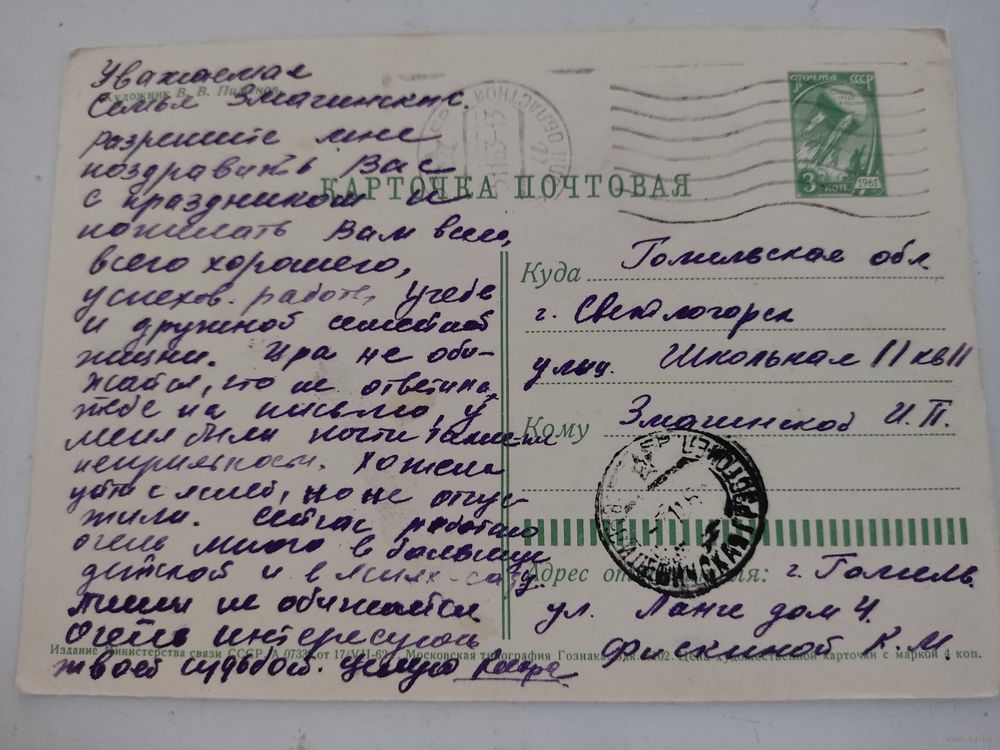 Уважаемая
Художник В. В. Пименов
Семья Змагинских.
разрешите мне
поздравить Вас
с праздником и
пожелать Вам всего,
всего хорошего,
успехов. работе, учебе
и дружной семейной
жизни. Ира не оби-
жайся, что не ответила
тебе на письмо, у
меня были
неприятности. Хотела
уйти с яслей, но не отпус-
тили. Сейчас работаю
очень много в больнице
детской и в яслях-саду.
Пиши не обижайся
Очень интересуюсь
твоей судьбой. целую
ПОЧТА СССР
3 КОП. 1961
КАРТОЧКА ПОЧТОВАЯ
Куда Гомельская обл
г. Светлогорск
улиц. Школьная 11 кв 11
Кому Змагинской И. П.
Адрес отправителя: г. Гомель
ул. Ланге дом 4.
Фискиной К. М.
Издание Министерства связи СССР. А 0733 от 17/VII-62 г. Московская типография Гознака. Цена художественной карточки с маркой 4 коп.